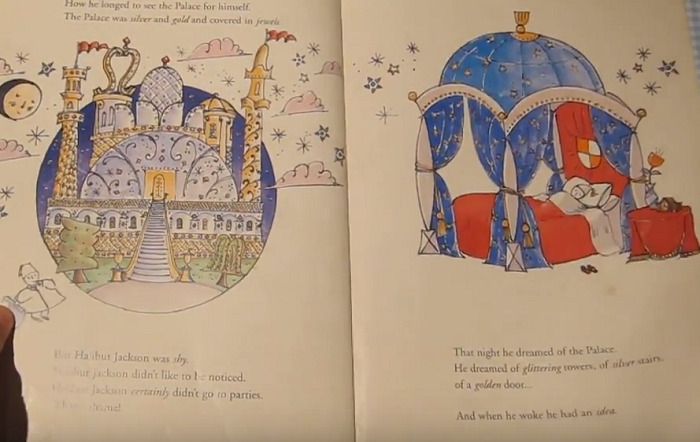 How he longed to see the Palace for himself.
The Palace was silver and gold and covered in jewels
But Halibut Jackson was shy.
Halibut Jackson didn't like to be noticed.
Halibut Jackson certainly didn't go to parties.
That night he dreamed of the Palace.
He dreamed of glittering towers, of silver stairs,
of a golden door...
And when he woke he had an idea.